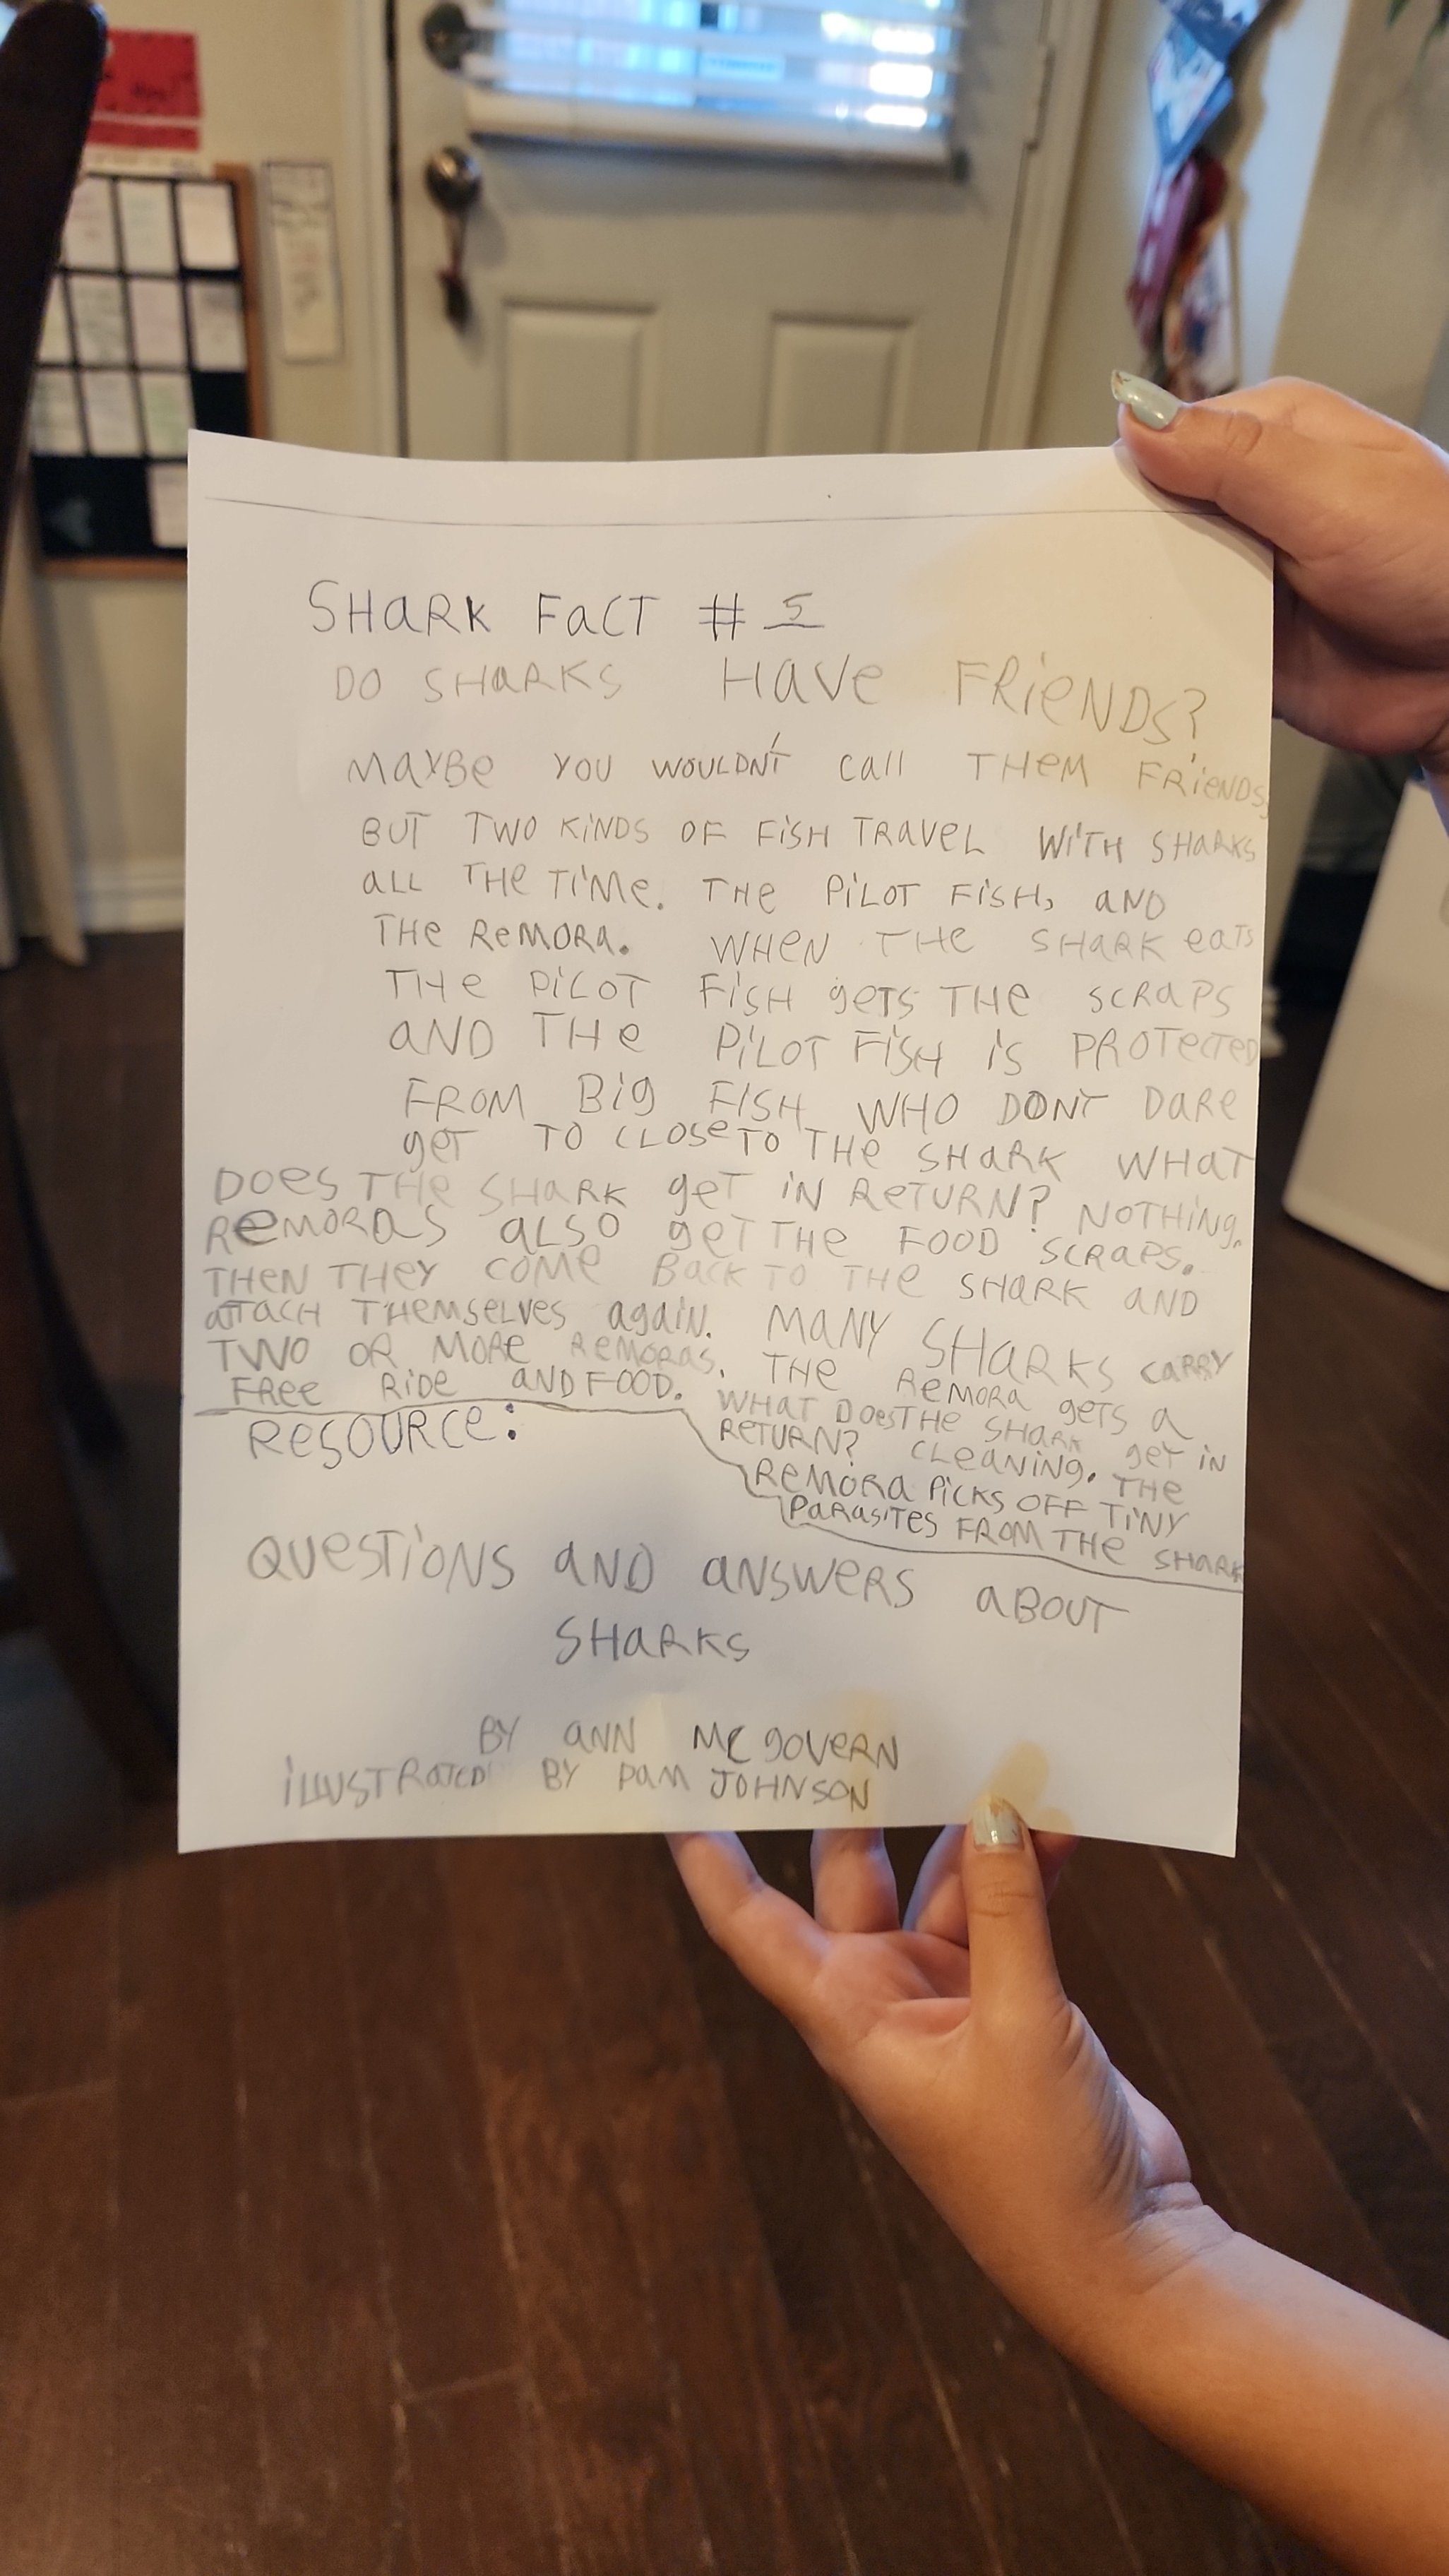 SHaRK FacT # 5
DO SHaRKS Have FRieNDS?
MaYBe YOU WOULDN'T Call THEM FRieNDS,
BUT TWO KiNDS OF FiSH TRaveL WiTH SHaRKS
aLL THe TiMe. THe PiLOT FiSH, aND
THe ReMORa. WHeN THe SHaRK eaTS
THe PiLOT FiSH geTS THe SCRaPS
aND THe PiLOT FiSH iS PROTecTeD
FROM Big FiSH WHO DONT DaRe
geT TO CLOSe TO THe SHaRK WHaT
DOeS THe SHaRK geT iN ReTURN? NOTHiNg.
ReMORaS aLSO geT THe FOOD SCRaPS.
THeN THeY COMe Back TO THe SHaRK aND
aTTaCH THeMSeLVeS agaiN. MaNY SHaRKS caRRY
TWO OR MORe ReMORaS. THe ReMORa geTS a
FRee RiDe aND FOOD. WHaT DOeS THe SHaRK geT iN
ReTURN? CLeaNiNg. THe
ReMORa PiCKS OFF TiNY
PaRaSiTeS FROM THe SHaRK
ReSOURCe:
QUeSTiONS aND aNSWeRS aBOUT
SHaRKS
BY aNN Mc goveRN
iLLUSTRaTeD BY Pam JOHNSON